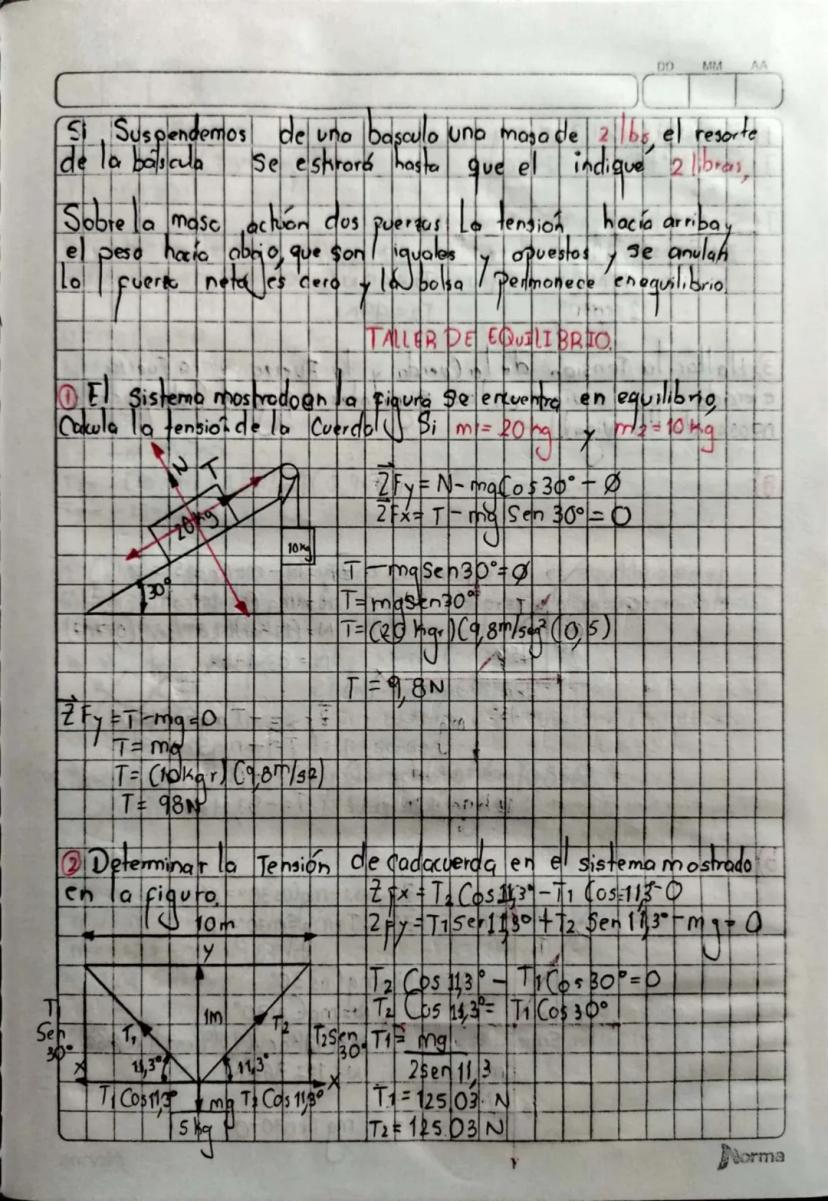 DD MM AA
Si Suspendemos de una bascula una masa de 2 lbs, el resorte
de la báscula se estirará hasta que el indique 2 libras,
Sobre la masa actúan dos fuerzas: La tensión hacía arriba y
el peso hacía abajo, que son iguales y opuestos y se anulan
la fuerza neta es cero y la bolsa permanece en equilibrio.
TALLER DE EQUILIBRIO.
① El sistema mostrado en la figura se encuentra en equilibrio,
Calcula la tensión de la Cuerda Si m1 = 20 kg y m2 = 10 kg
N T
20 kg
10 kg
30°
ΣFy = N - mg Cos 30° - Ø
ΣFx = T - mg Sen 30° = 0
T - mg Sen 30° = Ø
T = mg sen 30°
T = (20 kgr) (9,8 m/seg² (0,5)
T = 9,8 N
ΣFy = T - mg = 0
T = mg
T = (10 kgr) (9,8 m/s2)
T = 98 N
② Determinar la Tensión de cada cuerda en el sistema mostrado
en la figura.
ΣFx = T2 Cos 11,3° - T1 Cos 11,3 - 0
ΣFy = T1 Sen 11,3° + T2 Sen 11,3° - mg = 0
10 m
Y
1m
T1 T2
T1 Sen 30°
T2 Sen 30°
11,3° 11,3°
X X
T1 Cos 11,3° mg T2 Cos 11,3°
5 kg
T2 Cos 11,3° - T1 Cos 30° = 0
T2 Cos 11,3° = T1 Cos 30°
T1 = mg
2 sen 11,3
T1 = 125,03 N
T2 = 125.03 N
Norma